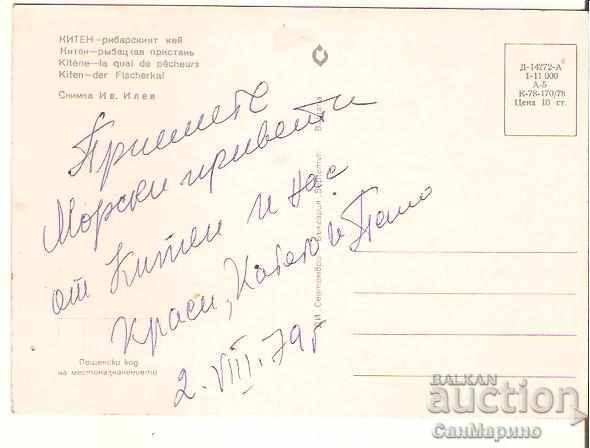 КИТЕН—рибарският кей
Китен—рыбацкая пристань
Kitène—la quai de pêcheurs
Kiten—der Fischerkai
Снимка Ив. Илев
Д-14272-А
1-11 000
А-5
К-78-170/78
Цена 10 ст.
Приемете
Морски привети
от Китен и нас
Краси, и Пешо
2. VIII. 79 г
ДИ Септември България
Пощенски код
на местоназначението
BALKAN
auction
СанМарино